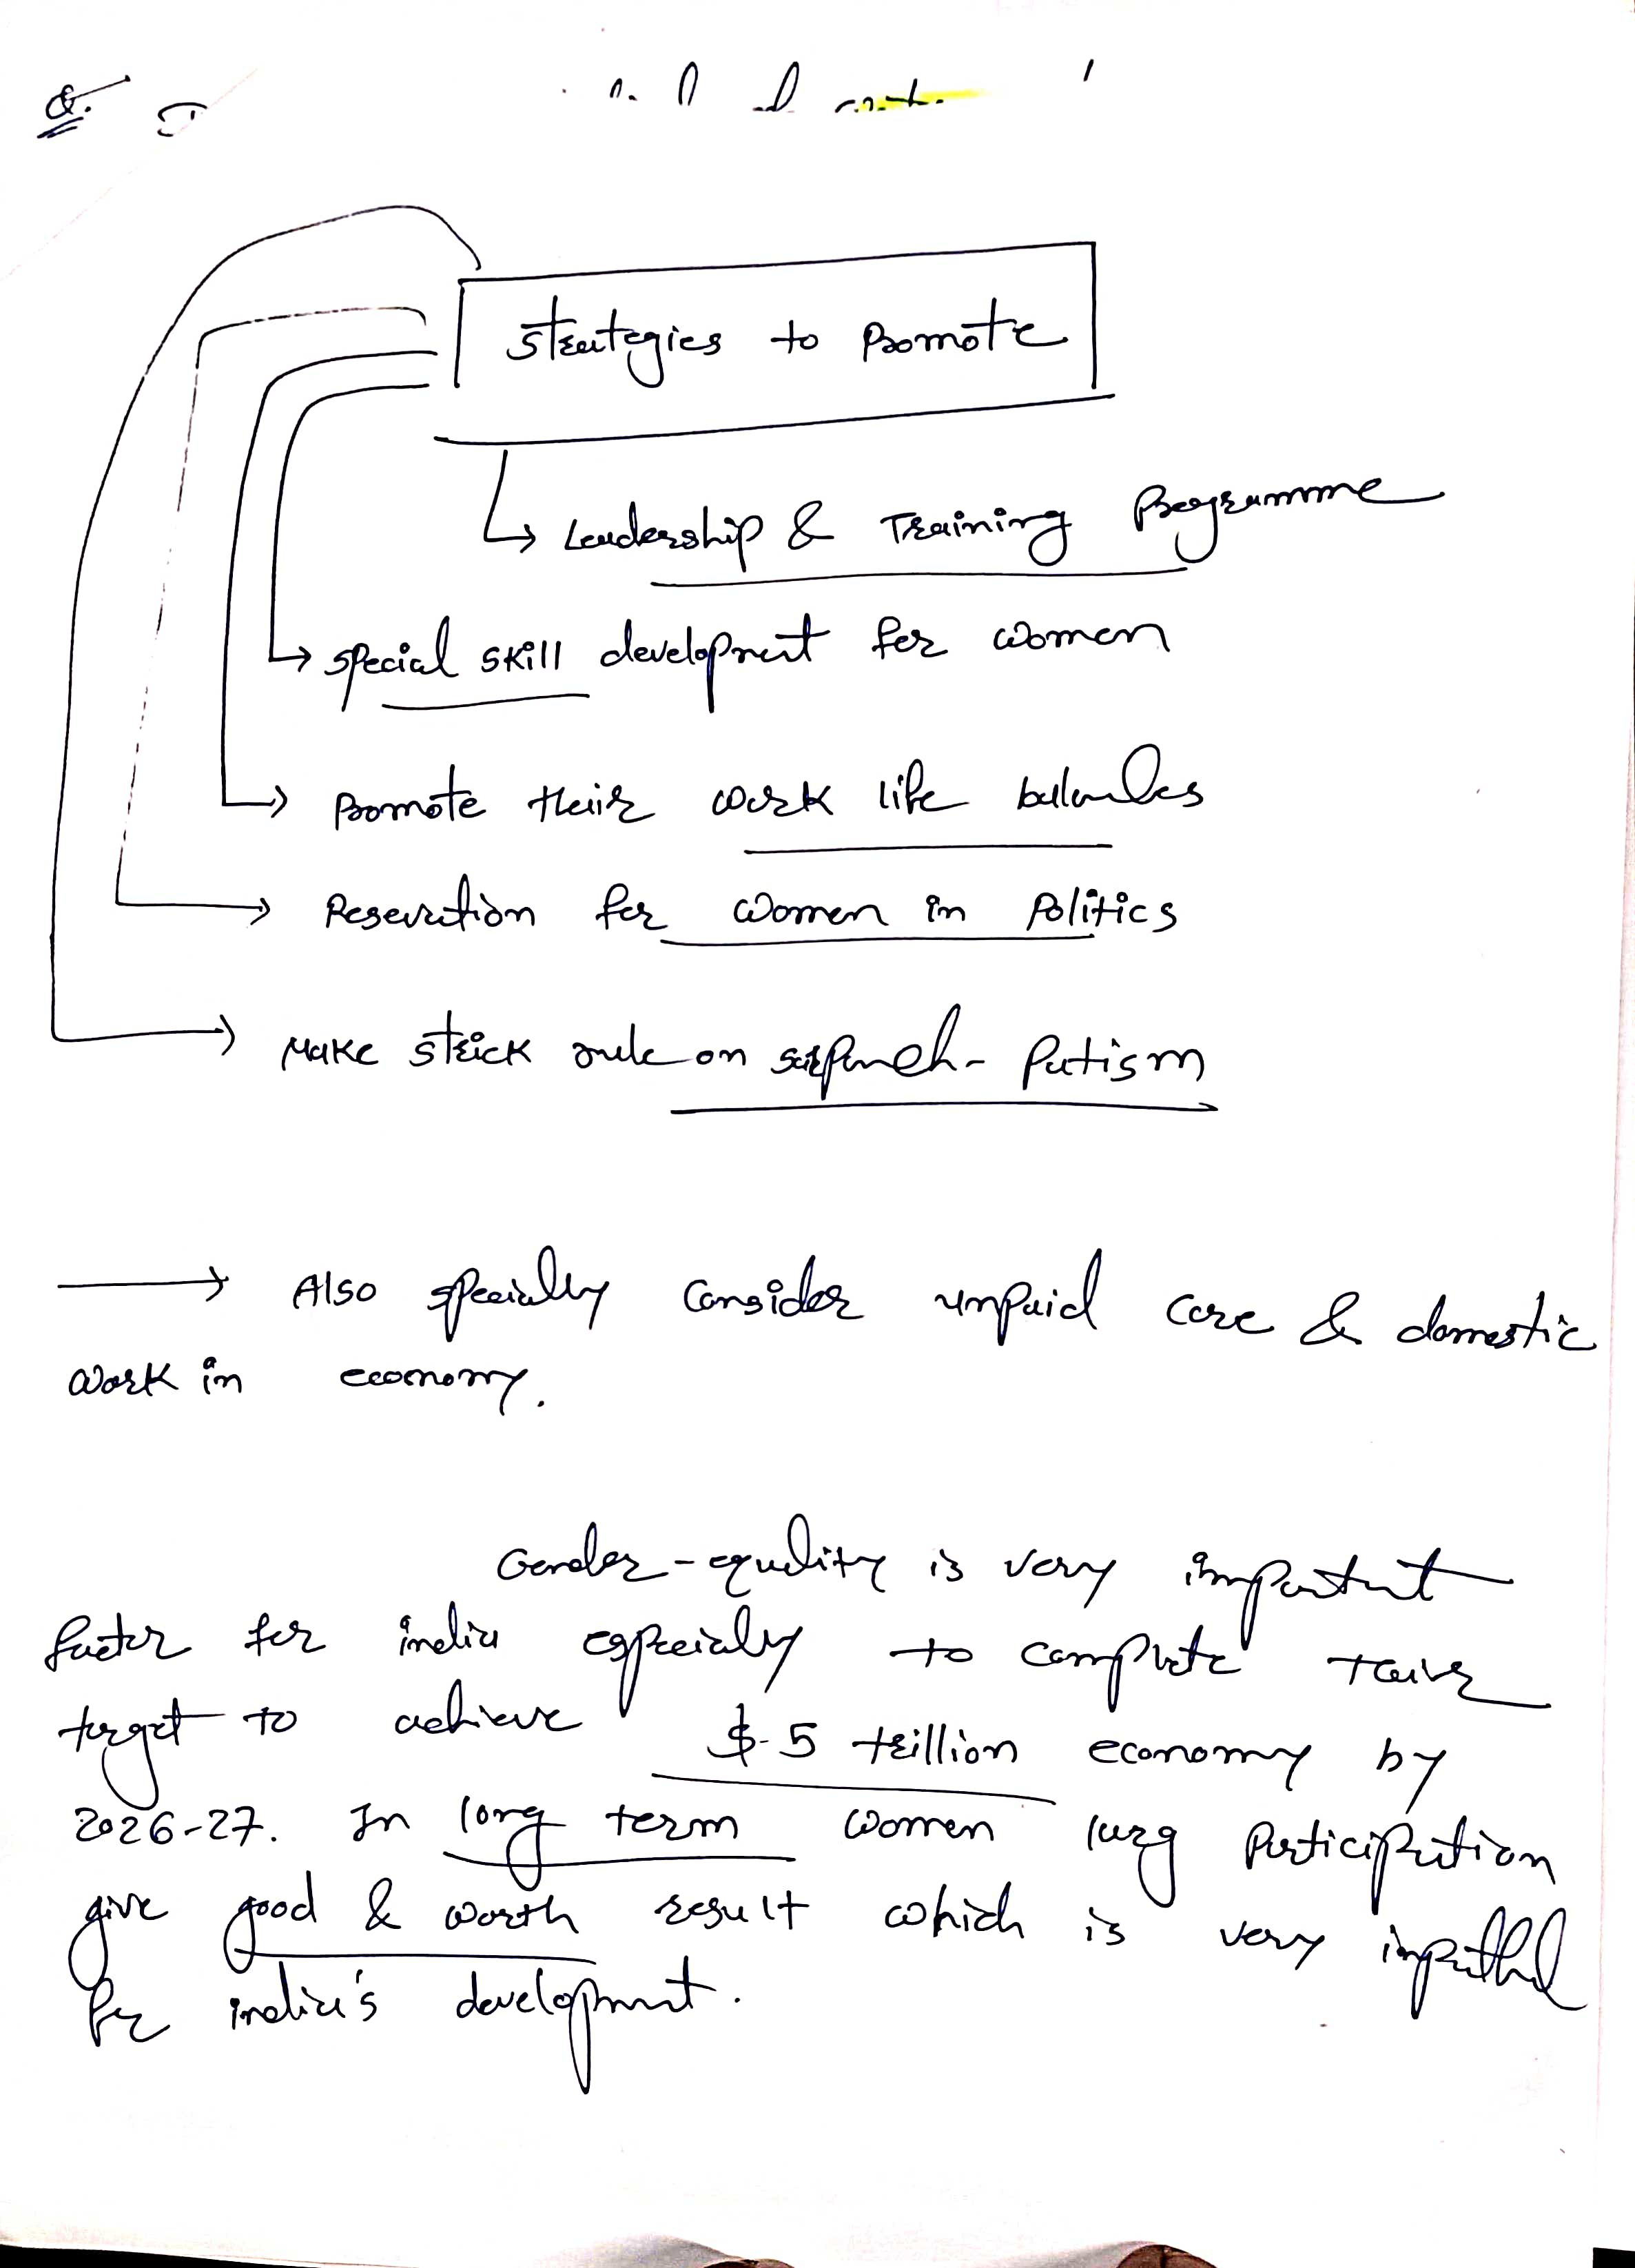 Q.
Strategies to promote
Leadership & Training Programme
special skill development for women
promote their work life balances
Reservation for women in politics
Make strick rule on sarpanch-Patism
Also specially consider unpaid care & domestic
work in economy.
Gender-equality is very important
factor for india especialy to complete
target to achieve $-5 trillion economy by
2026-27. In long term women larg Participation
give good & worth result which is very
for india's development.